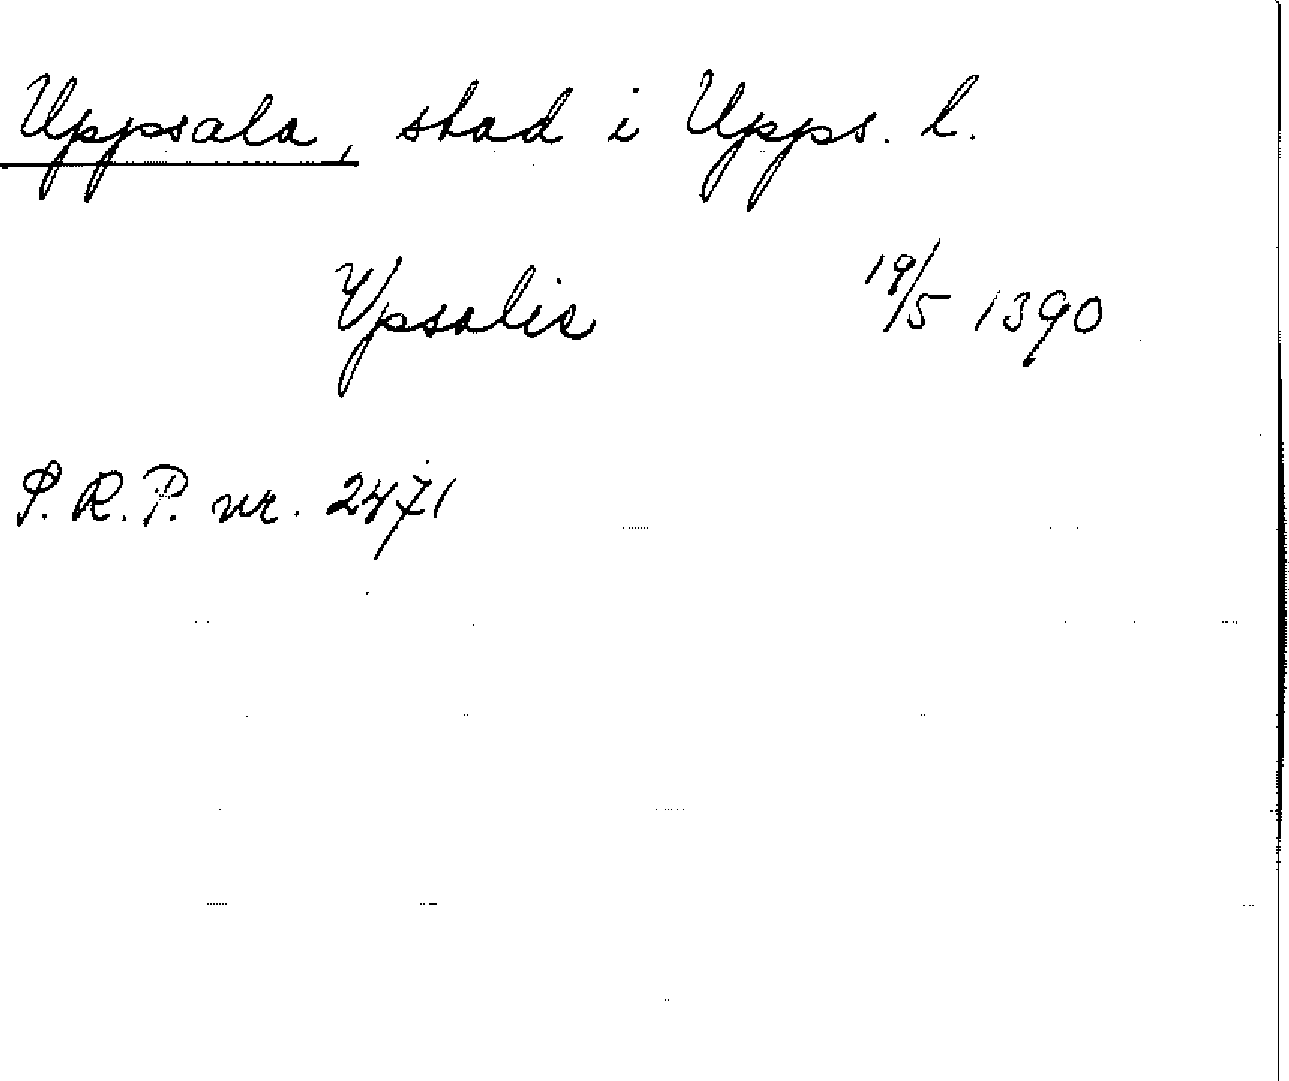 Uppsala, stad i Upps. l.
Vpsalis 19/5 1390
S.R.P. nr. 2471